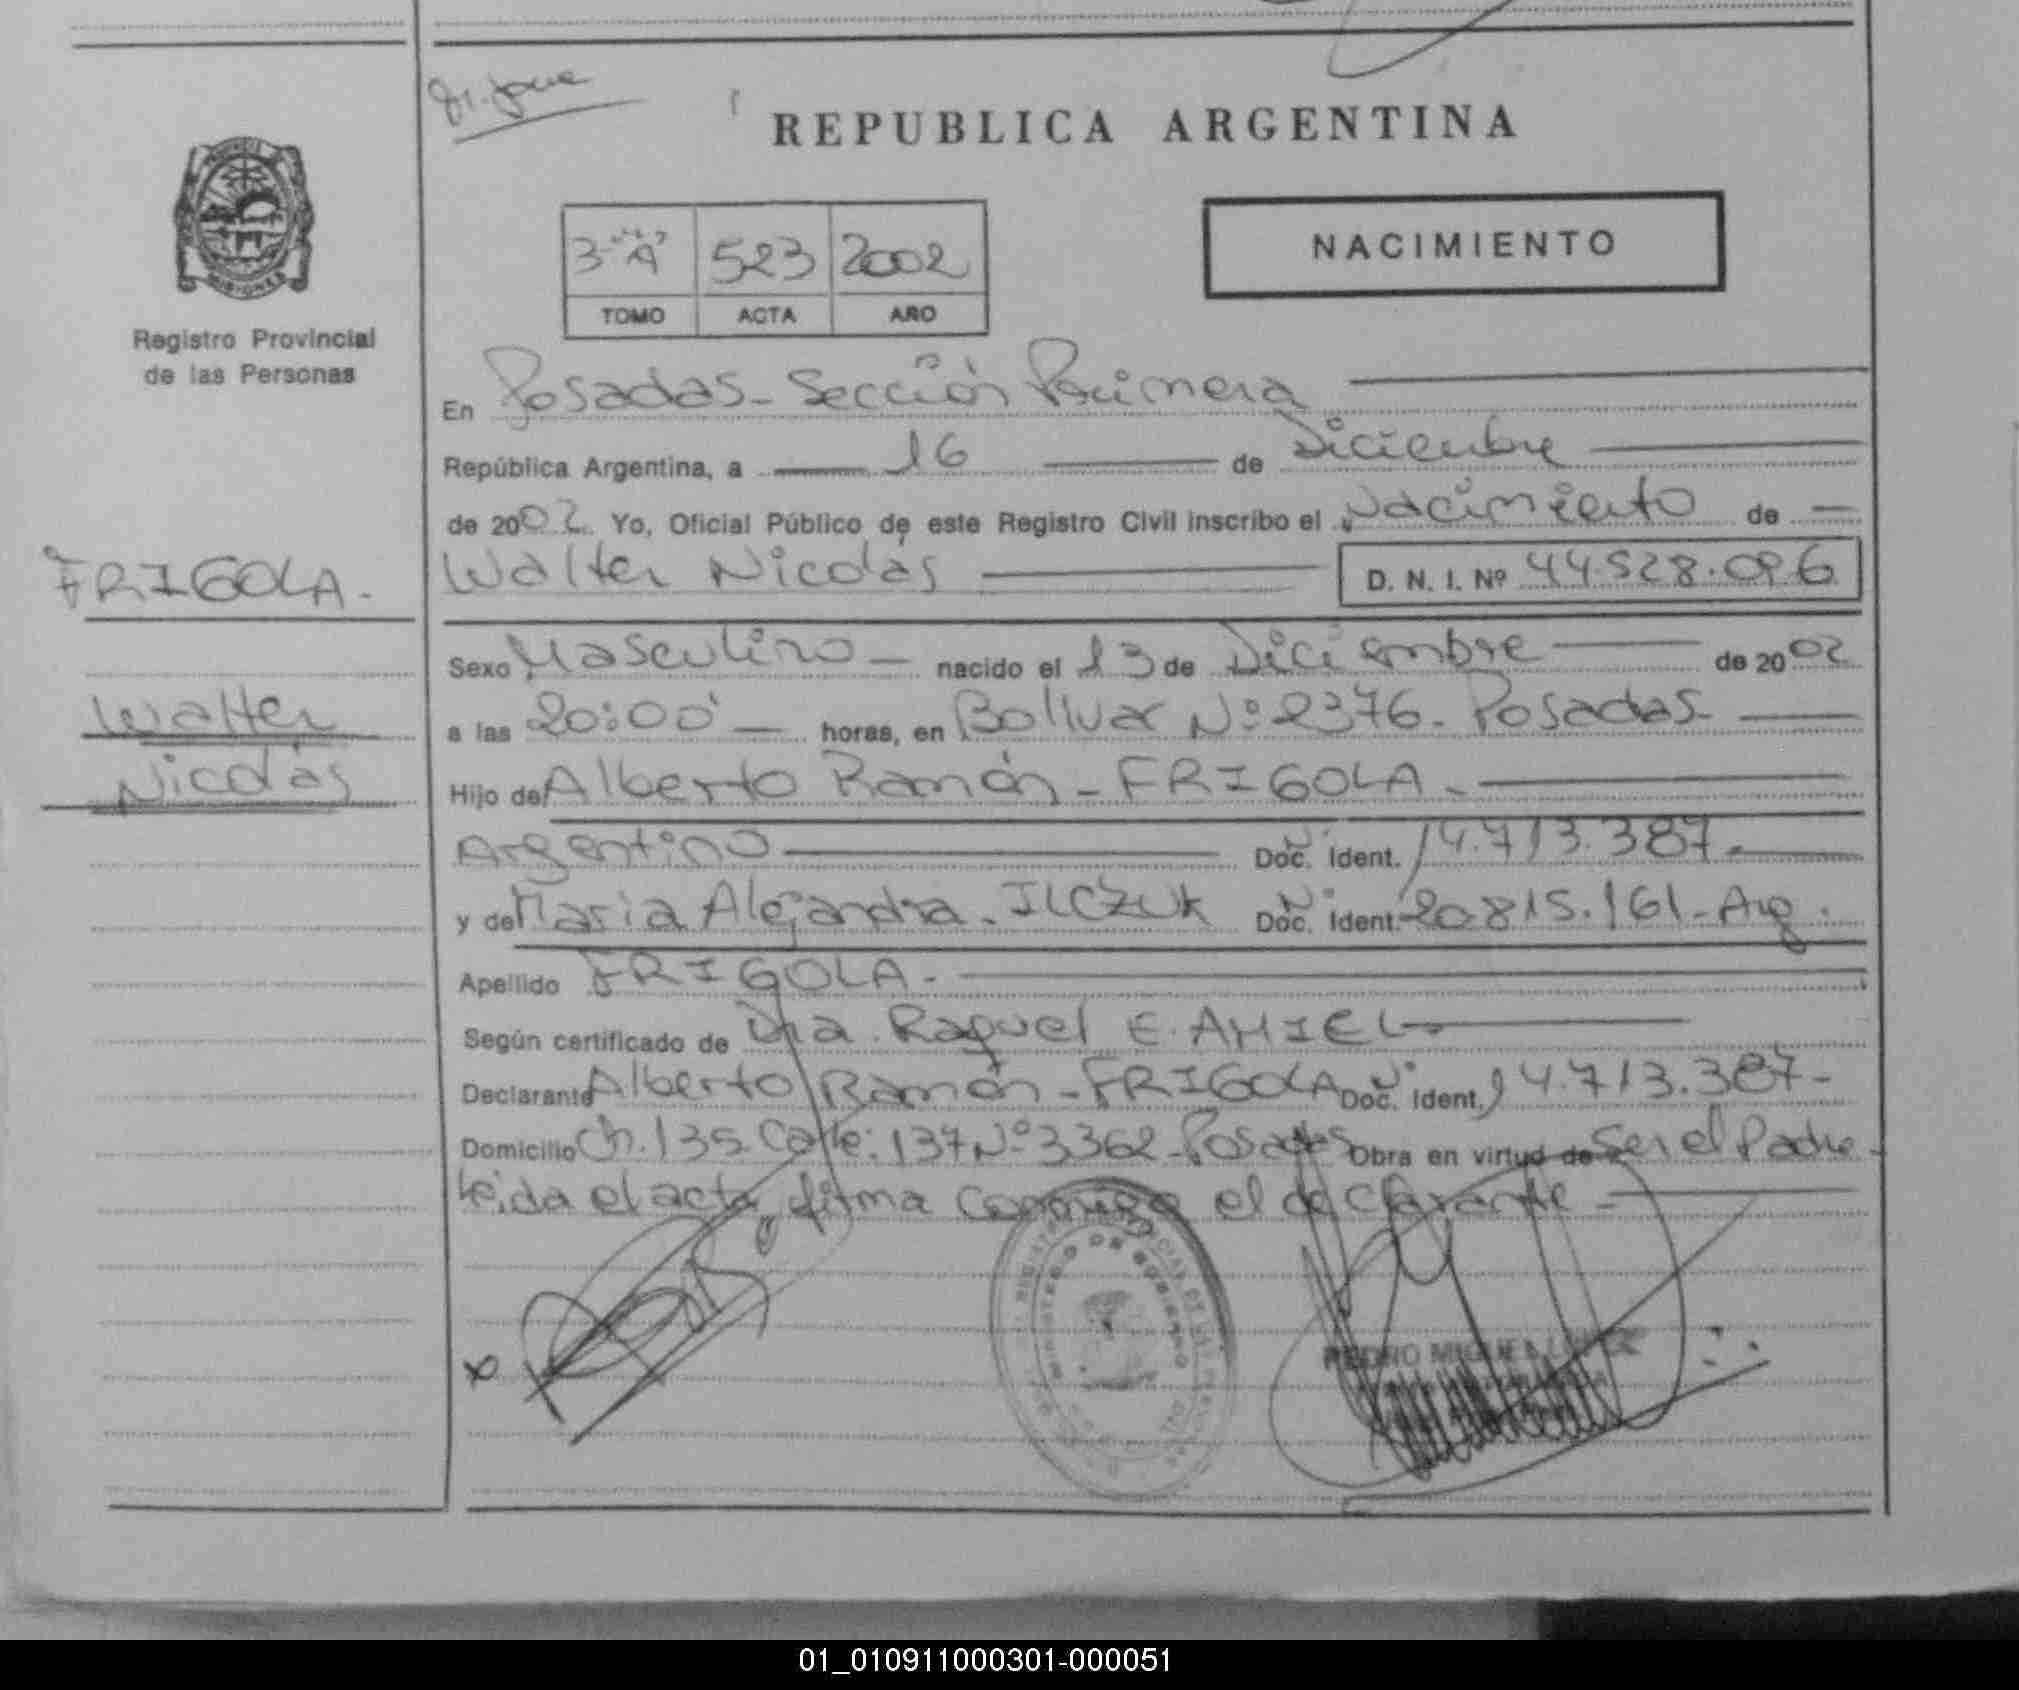 REPUBLICA ARGENTINA
PROVINCIA
MISIONES
Registro Provincial
de las Personas
3-"A" 523 2002
TOMO ACTA AÑO
NACIMIENTO
En Posadas - Sección Primera
República Argentina, a 16 de Diciembre
de 2002 Yo, Oficial Público de este Registro Civil inscribo el Nacimiento de
FRIGOLA.
Walter Nicolás D. N. I. Nº 44.528.096
Sexo Masculino - nacido el 13 de Diciembre de 2002
Walter
Nicolás
a las 20:00 horas, en Bolivar Nº 2376 - Posadas
Hijo de Alberto Ramón - FRIGOLA -
Argentino Doc. Ident. 14.713.387 -
y de Maria Alejandra - ILCZUK Doc. Ident. 20.815.161 - Arg.
Apellido FRIGOLA -
Según certificado de Dra. Raquel E. AMIEL
Declarante Alberto Ramón - FRIGOLA Doc. Ident. 14.713.387 -
Domicilio Ch. 135 Calle: 137 Nº 3362 - Posadas Obra en virtud de Ser el Padre -
Leida el acta, firma conmigo el declarante -
MINISTERIO DE GOBIERNO
PEDRO MIGUEL
01_010911000301-000051